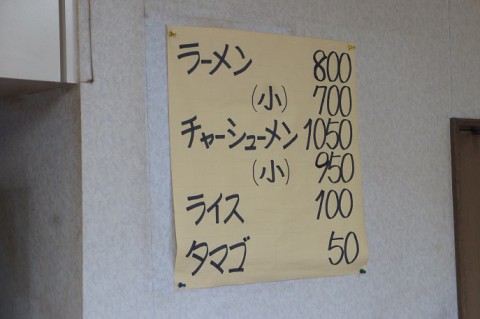 ラーメン 800
(小) 700
チャーシューメン 1050
(小) 950
ライス 100
タマゴ 50